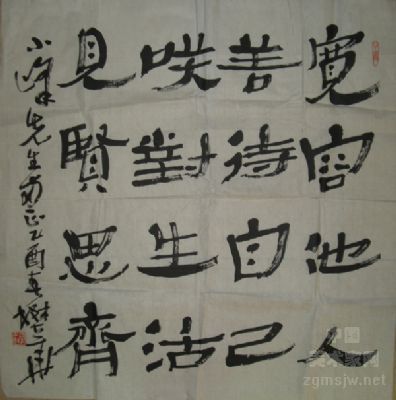 寬容他人
善待自己
咲對生活
見賢思齊
小峰先生方正乙酉春
中国
美术家网
zgmsjw.net